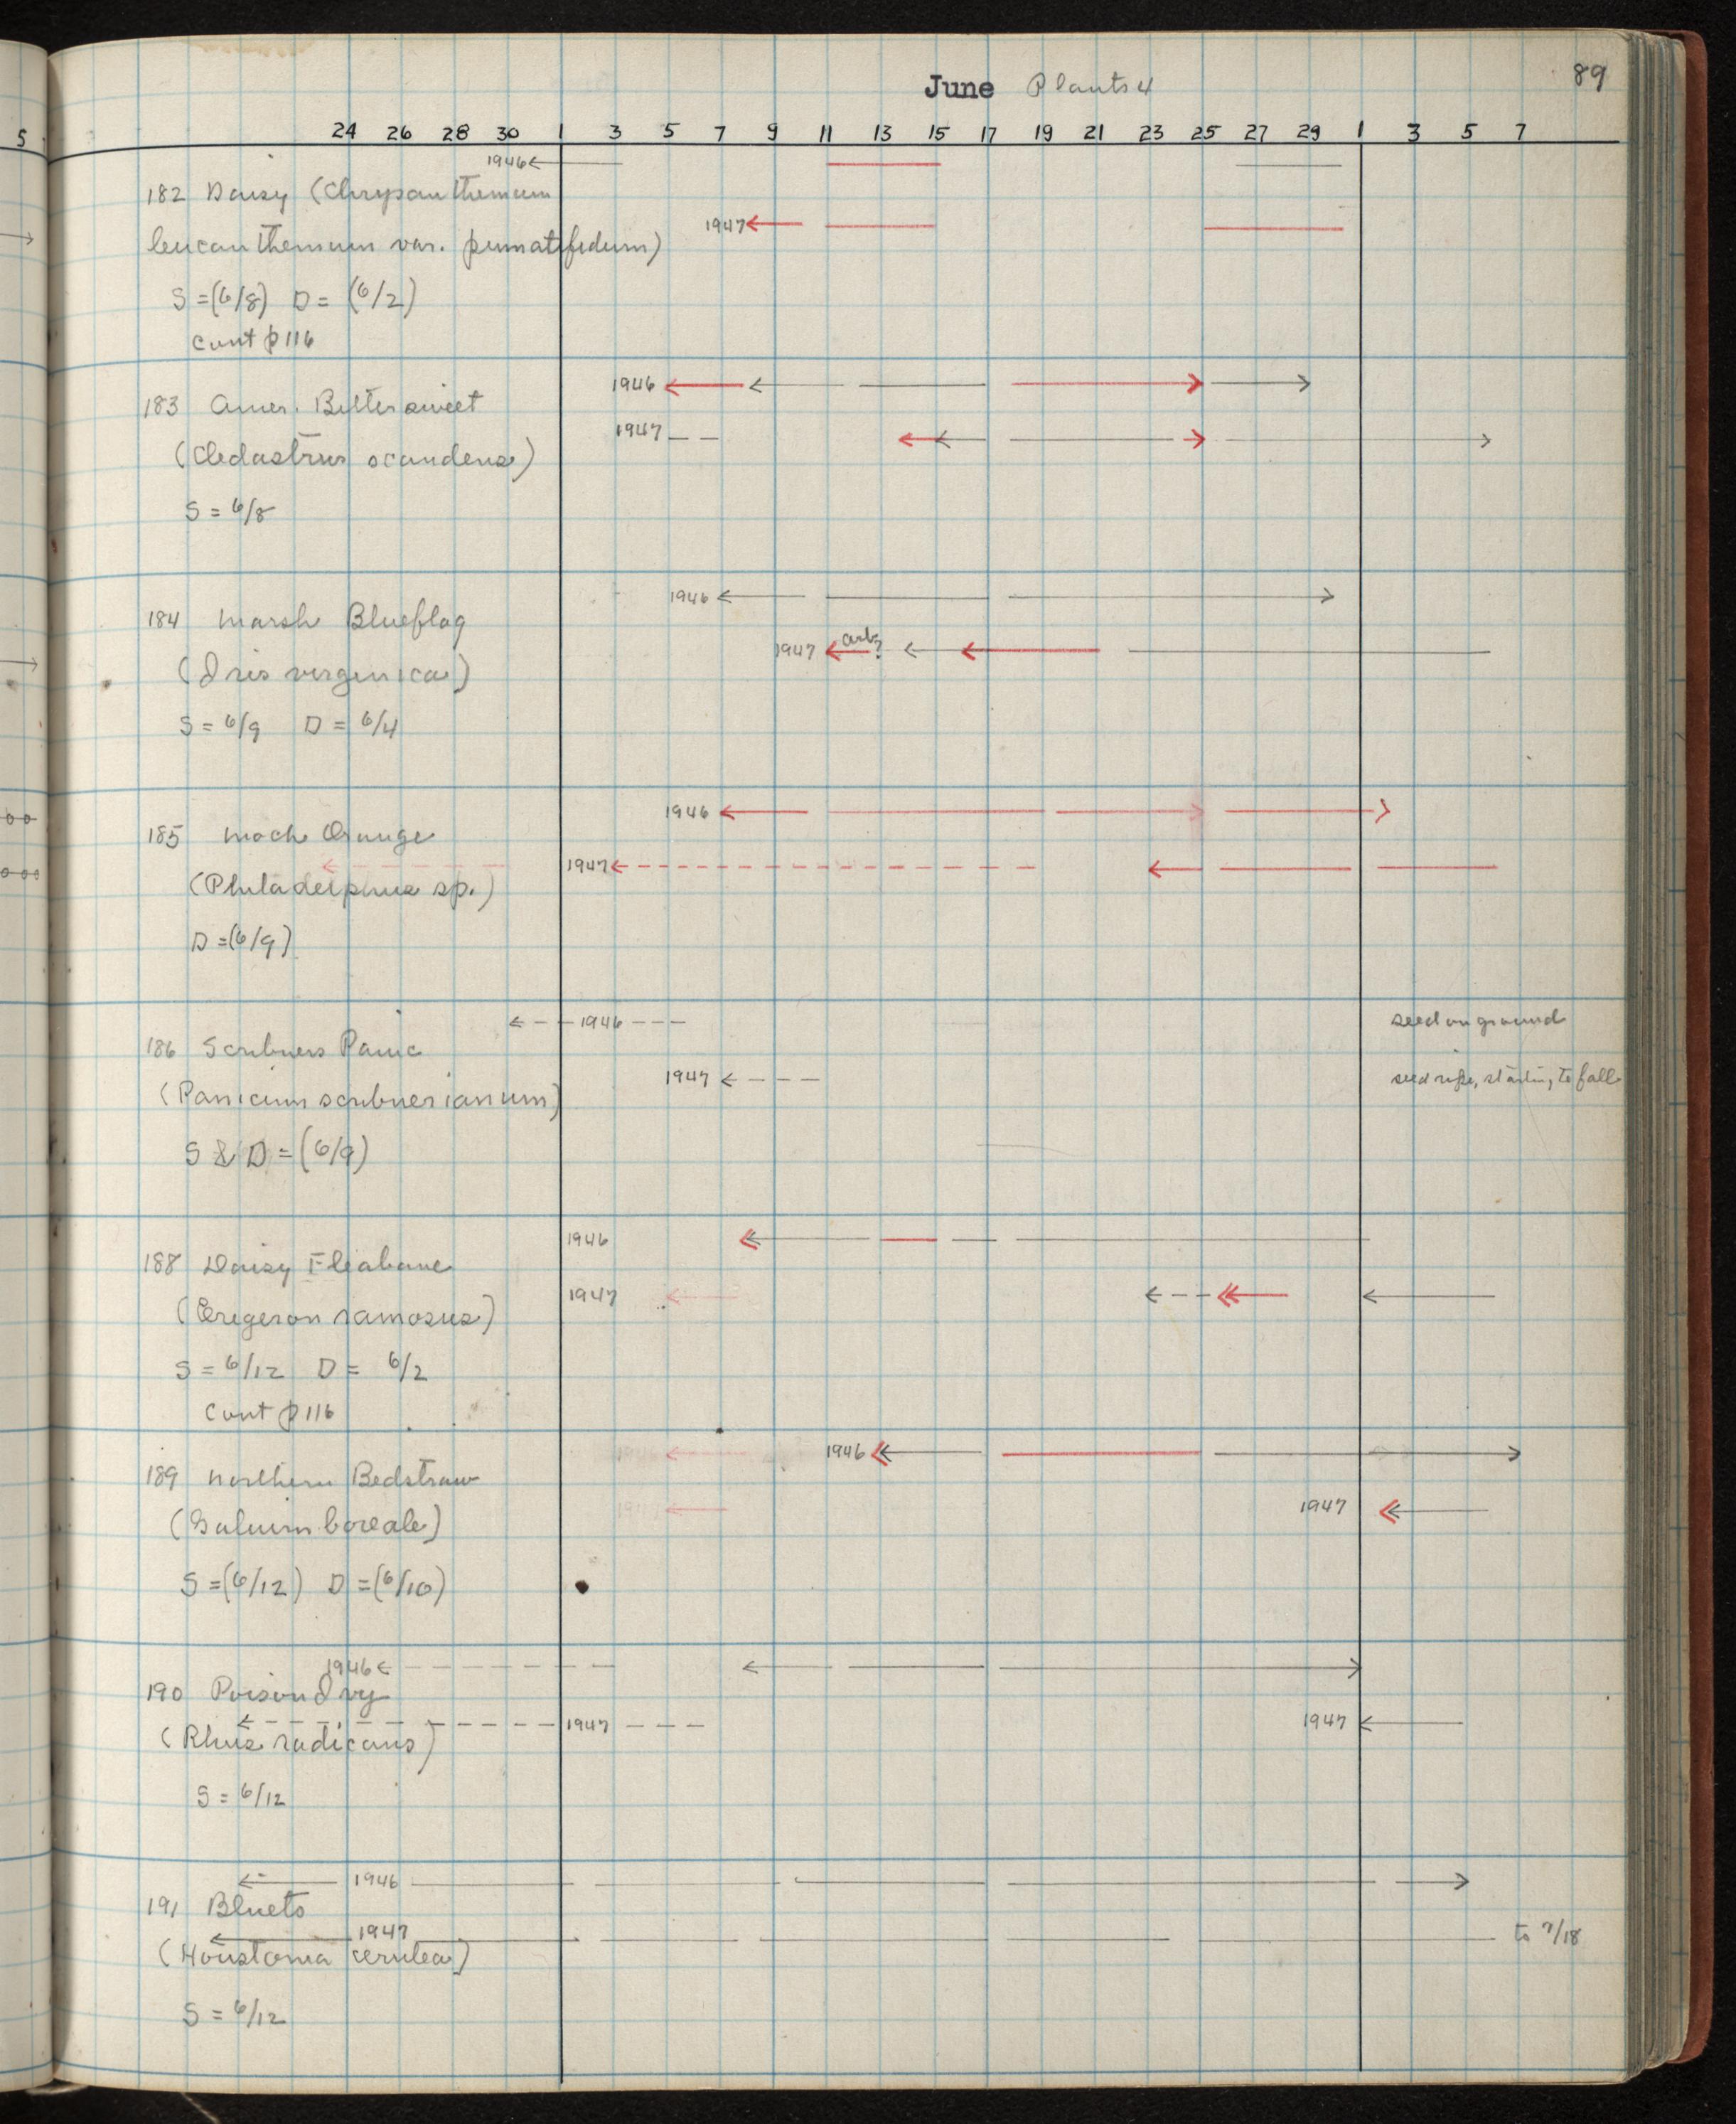 89
June Plants 4
5
24 26 28 30 1 3 5 7 9 11 13 15 17 19 21 23 25 27 29 1 3 5 7
1946
182 Daisy (Chrysanthemum
1947
leucanthemum var. pinnatifidum)
S =(6/8) D = (6/2)
Cont p 116
1946
183 Amer. Bittersweet
1947
(Celastrus scandens)
S = 6/8
1946
184 Marsh Blueflag
1947 arb?
(Iris virginica)
S = 6/9 D = 6/4
1946
185 Mock Orange
1947
(Philadelphus sp.)
D =(6/9)
1946 seed on ground
186 Scribners Panic
1947 seed ripe, starting to fall
(Panicum scribnerianum)
S & D = (6/9)
1946
188 Daisy Fleabane
1947
(Eregeron ramosus)
S = 6/12 D = 6/2
Cont p 116
1946
189 Northern Bedstraw
1947
(Galium boreale)
S =(6/12) D =(6/10)
1946
190 Poison Ivy
1947 1947
(Rhus radicans)
S = 6/12
1946
191 Bluets
1947 to 7/18
(Houstonia cerulea)
S = 6/12